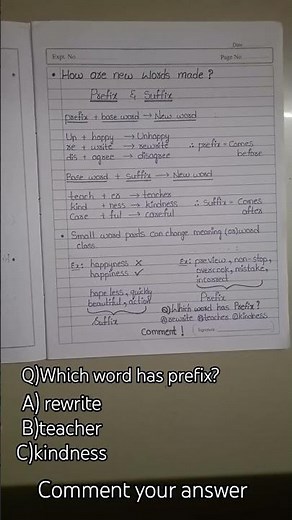 Date
Expt. No.
Page No.
• How are new words made?
Prefix & Suffix
prefix + base word → New word
Un + happy → Unhappy
re + write → rewrite
dis + agree → disagree
∴ prefix = Comes before
Base word + suffix → New word
teach + er → teacher
Kind + ness → kindness
Care + ful → careful
∴ Suffix = Comes after
• Small word parts can change meaning (or) word
class.
Ex: happyness ×
happiness ✓
hopeless, quickly
beautiful, action
Suffix
Ex: preview, non-stop,
overcook, mistake,
incorrect
Prefix
Q) Which word has Prefix?
① rewrite ② teacher ③ kindness
Comment!
Q)Which word has prefix?
A) rewrite
B)teacher
C)kindness
Comment your answer